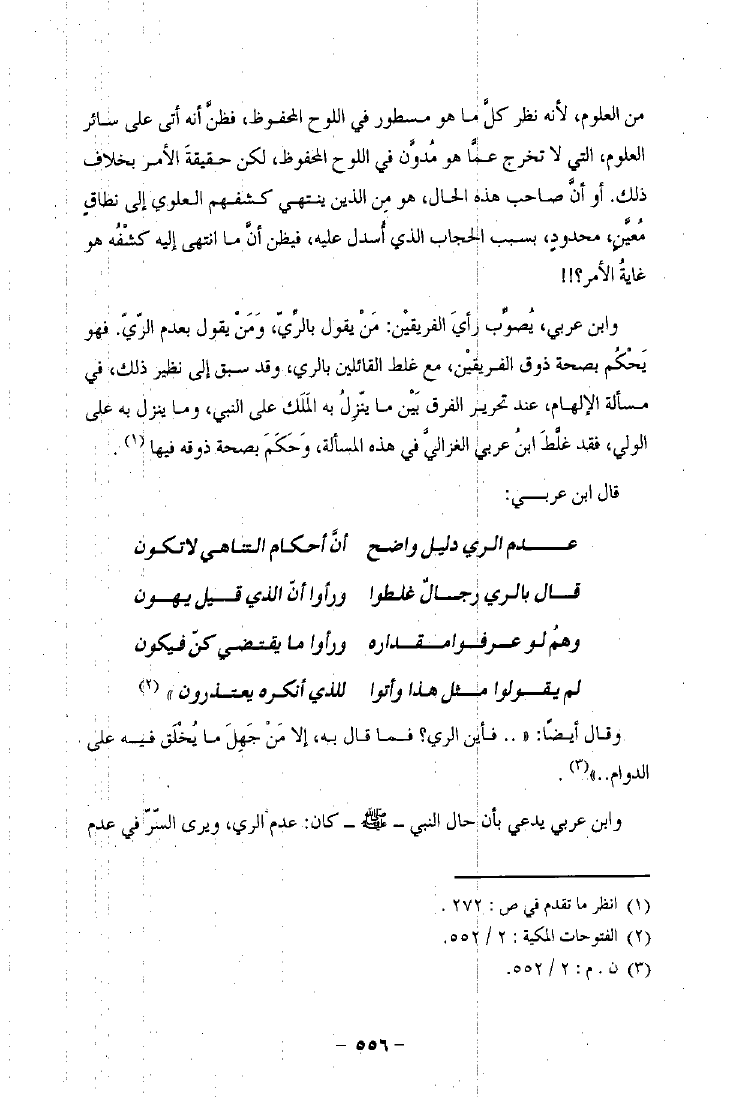 من العلوم، لأنه نظر كلَّ ما هو مسطور في اللوح المحفوظ، فظنَّ أنه أتى على سائر
العلوم، التي لا تخرج عمَّا هو مُدوَّن في اللوح المحفوظ، لكن حقيقةَ الأمر بخلاف
ذلك. أو أنَّ صاحب هذه الحال، هو مِن الذين ينتهي كشفهم العلوي إلى نطاقٍ
مُعيَّنٍ، محدودٍ، بسبب الحجاب الذي أُسدل عليه، فيظن أنَّ ما انتهى إليه كشْفُه هو
غايةُ الأمر؟!!
وابن عربي، يُصوِّب رأيَ الفريقيْن: مَنْ يقول بالرِّيّ، وَمَنْ يقول بعدم الرِّيّ. فهو
يَحْكُم بصحة ذوق الفريقيْن، مع غلط القائلين بالري، وقد سبق إلى نظير ذلك، في
مسألة الإلهام، عند تحرير الفرق بَيْن ما ينّزلُ به المَلَك على النبي، وما ينزل به على
الولي، فقد غلَّطَ ابنُ عربي الغزاليَّ في هذه المسألة، وَحَكَمَ بصحة ذوقه فيها (١) .
قال ابن عربي:
عدم الري دليل واضح أنَّ أحكام التناهي لا تكون
قال بالري رجالٌ غلطوا ورأوا أنّ الذي قيل يهون
وهمُ لو عرفوا مقداره ورأوا ما يقتضي كنّ فيكون
لم يقولوا مثل هذا وأتوا للذي أنكره يعتذرون » (٢)
وقال أيضًا: « .. فأين الري؟ فما قال به، إلا مَنْ جَهِلَ ما يُخْلَق فيه على
الدوام..»(٣) .
وابن عربي يدعي بأن حال النبي ـ ﷺ ـ كان: عدم الري، ويرى السّرّ في عدم
(١) انظر ما تقدم في ص : ٢٧٢ .
(٢) الفتوحات المكية : ٢ / ٥٥٢.
(٣) ن . م : ٢ / ٥٥٢.
- ٥٥٦ -